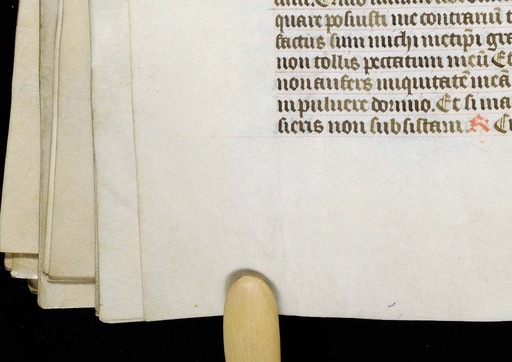 quare posuisti me contrariū t
factus sum michi metip̄i gra
non tollis peccatum meū Et
non aufers iniquitatē meā
in puluere dormio. Et si ma
sieris non subsistam. R Cr